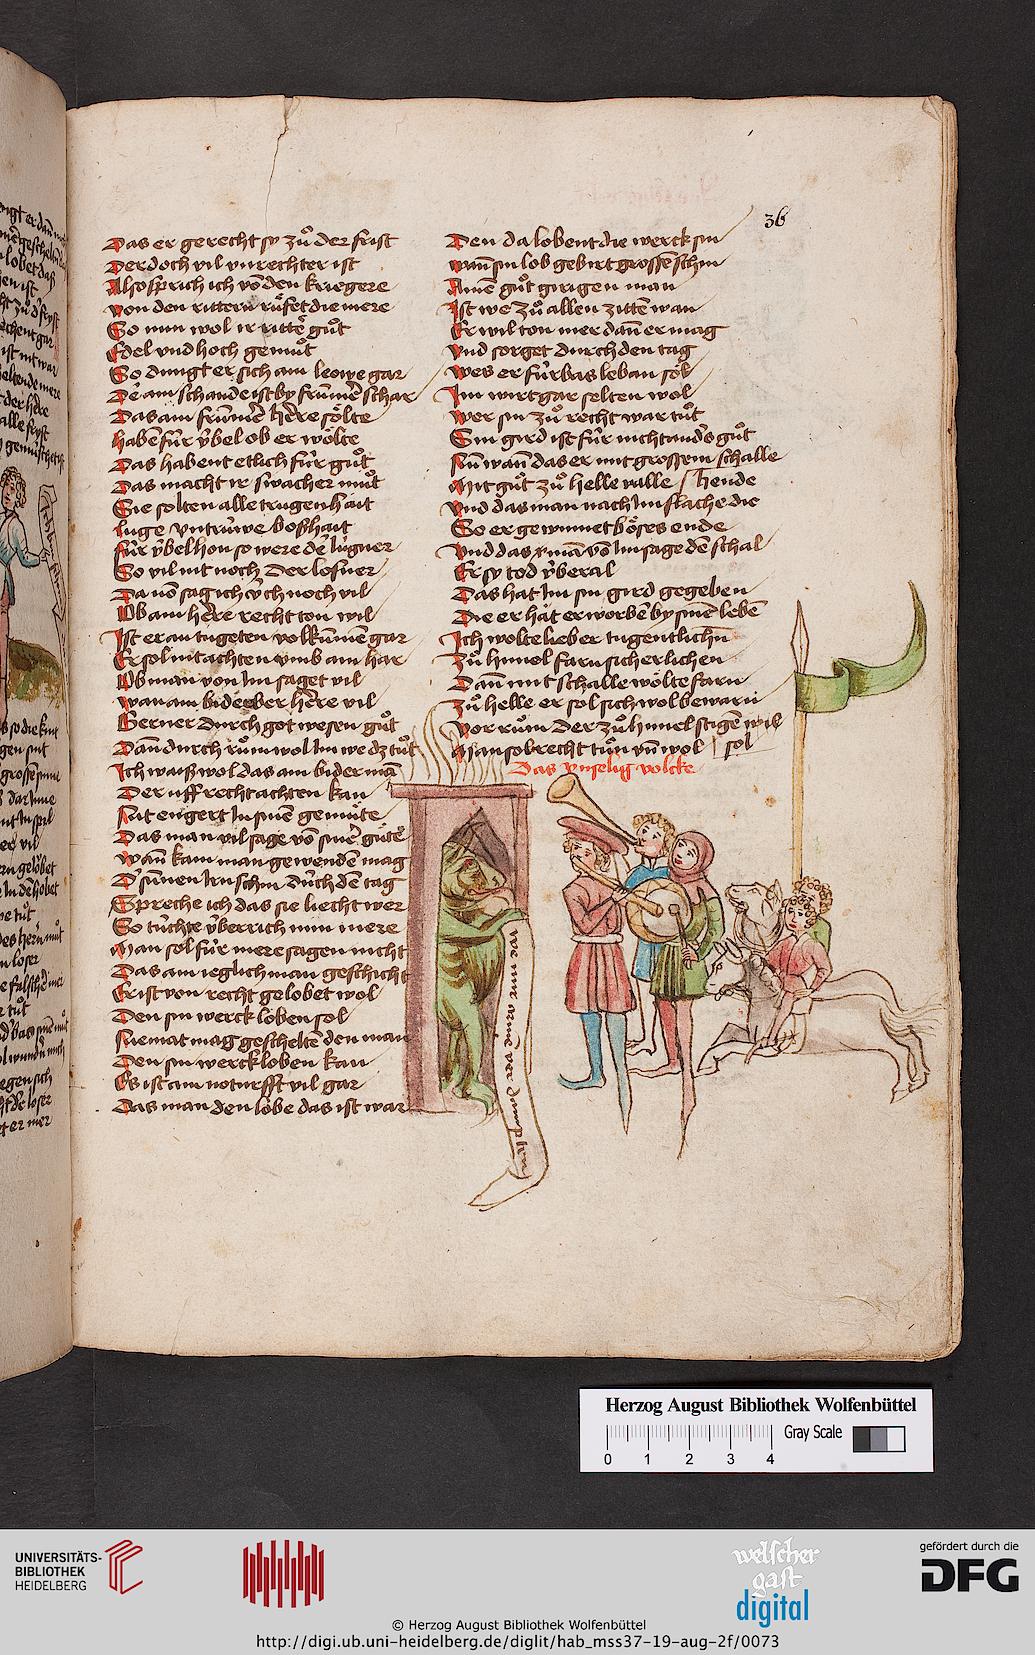 36
Das er gerecht sy zuͦ der frist
Der doch vil vnrechter ist
Also sprich ich vō den kriegere
von den rittern ruͤfet die mere
So nun wol ir rittē guͦt
Edel vnd hoch gemuͦt
So dungt er sich ain leowe gar
Dē ain schande ist by frūmēr schar
Das ain frūmēr hēre soͤlte
haben fuͤr vͤbel ob er woͤlte
Das habent etlich fuͤr guͦt
Das macht ir swacher muͦt
Sie solten alle trugenhait
luge vntruͤwe boßhait
fuͤr vͤbel hon so were dē lugner
So vil nit noch der losner
Da vō sag ich vͤch noch vil
Ob ain hēre recht ton wil
Ist er an tugeten volkūmē gar
Er sol nit achten vmb ain har
Ob man von im saget vil
wan ain biderber hēre vil
Gerner durch got wesen guͦt
Dan̄ durch ruͦm wol im we dz tuͦt
Ich waiß wol das ain biderman̄
Der uff recht achten kan
hat engert in sinē gemuͤte
Das man vil sage vō sinēr guͤte
wan̄ kain man gewenden mag
Dē sunnen irn schin durch den tag
Spreche ich das sie liecht wer
So tuͤchte vͤberrich min mere
Man sol fuͤr mere sagen nicht
Das ain ieglich man geschicht
Er ist von recht gelobet wol
Den sin werck loben sol
Niemat mag geschelten den man
Den sin werck loben kan
Es ist ain noturfft vil gar
Das man den lobe das ist war
Den da lobent die werck sin
wan̄ sin lob gebirt grossē schin
Ainē guͦt girigen man
Ist we zuͦ allen zittē wan
Er wil ton mer dan̄ er mag
vnd sorget durch den tag
wes er fuͤrbas leban soͤl
Im wirt gar selten wol
wer sin zuͦ recht war tuͦt
Sin gird ist fuͤr nicht guͦt
wan̄ das er mit grossem schalle
Mit guͦt zuͦ helle valle hende
vnd das man nach im slache die
So er gewinnet boͤses ende
vnd das man vō im sage dē schal
Er sy tod vͤberal
Das hat im sin gird gegeben
Die er hat erworbē by sinē lebē
Ich wolte lieber tugentlichn̄
Zuͦ himel farn sicherlichen
Dan̄ mit schalle woͤlte farn
zuͦ helle er sol sich wol bewarn
vor ruͦm der zuͦ himel stigē wil
Man so brecht tuͦn vn̄ wol sol
Das vnselig volcke
Herzog August Bibliothek Wolfenbüttel
Gray Scale
0 1 2 3 4
UNIVERSITÄTS-
BIBLIOTHEK
HEIDELBERG
welscher
gast
digital
gefördert durch die
DFG
© Herzog August Bibliothek Wolfenbüttel
http://digi.ub.uni-heidelberg.de/diglit/hab_mss37-19-aug-2f/0073